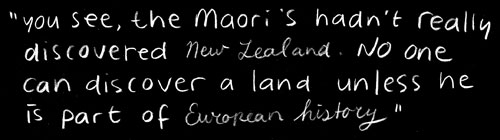 "you see, the Maori's hadn't really
discovered New Zealand. No one
can discover a land unless he
is part of European history"